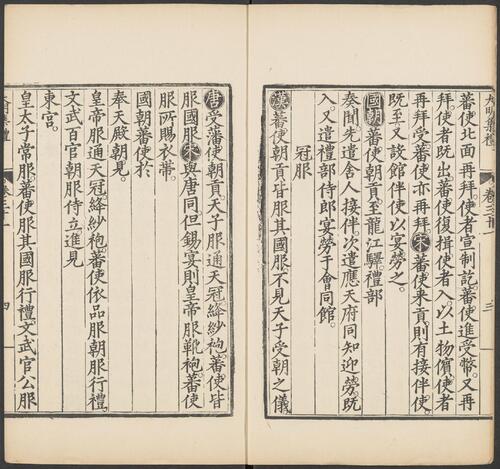 大明集禮
卷三十一
三
蕃使北面再拜使者宣制訖蕃使進受幣又再
拜使者既出蕃使復揖使者入以土物儐使者
再拜受蕃使亦再拜宋蕃使來貢則有接伴使
既至又設館伴使以宴勞之
國朝蕃使朝貢至龍江驛禮部
奏聞先遣舍人接伴次遣應天府同知迎勞既
入又遣禮部侍郎宴勞于會同館
冠服
漢蕃使朝貢皆服其國服不見天子受朝之儀
唐受蕃使朝貢天子服通天冠絳紗袍蕃使皆
服國服宋與唐同但錫宴則皇帝服靴袍蕃使
服所賜衣帶
國朝蕃使於
奉天殿朝見
皇帝服通天冠絳紗袍蕃使依品服朝服行禮
文武百官朝服侍立進見
東宮
皇太子常服蕃使服其國服行禮文武官公服
卷三十一
四